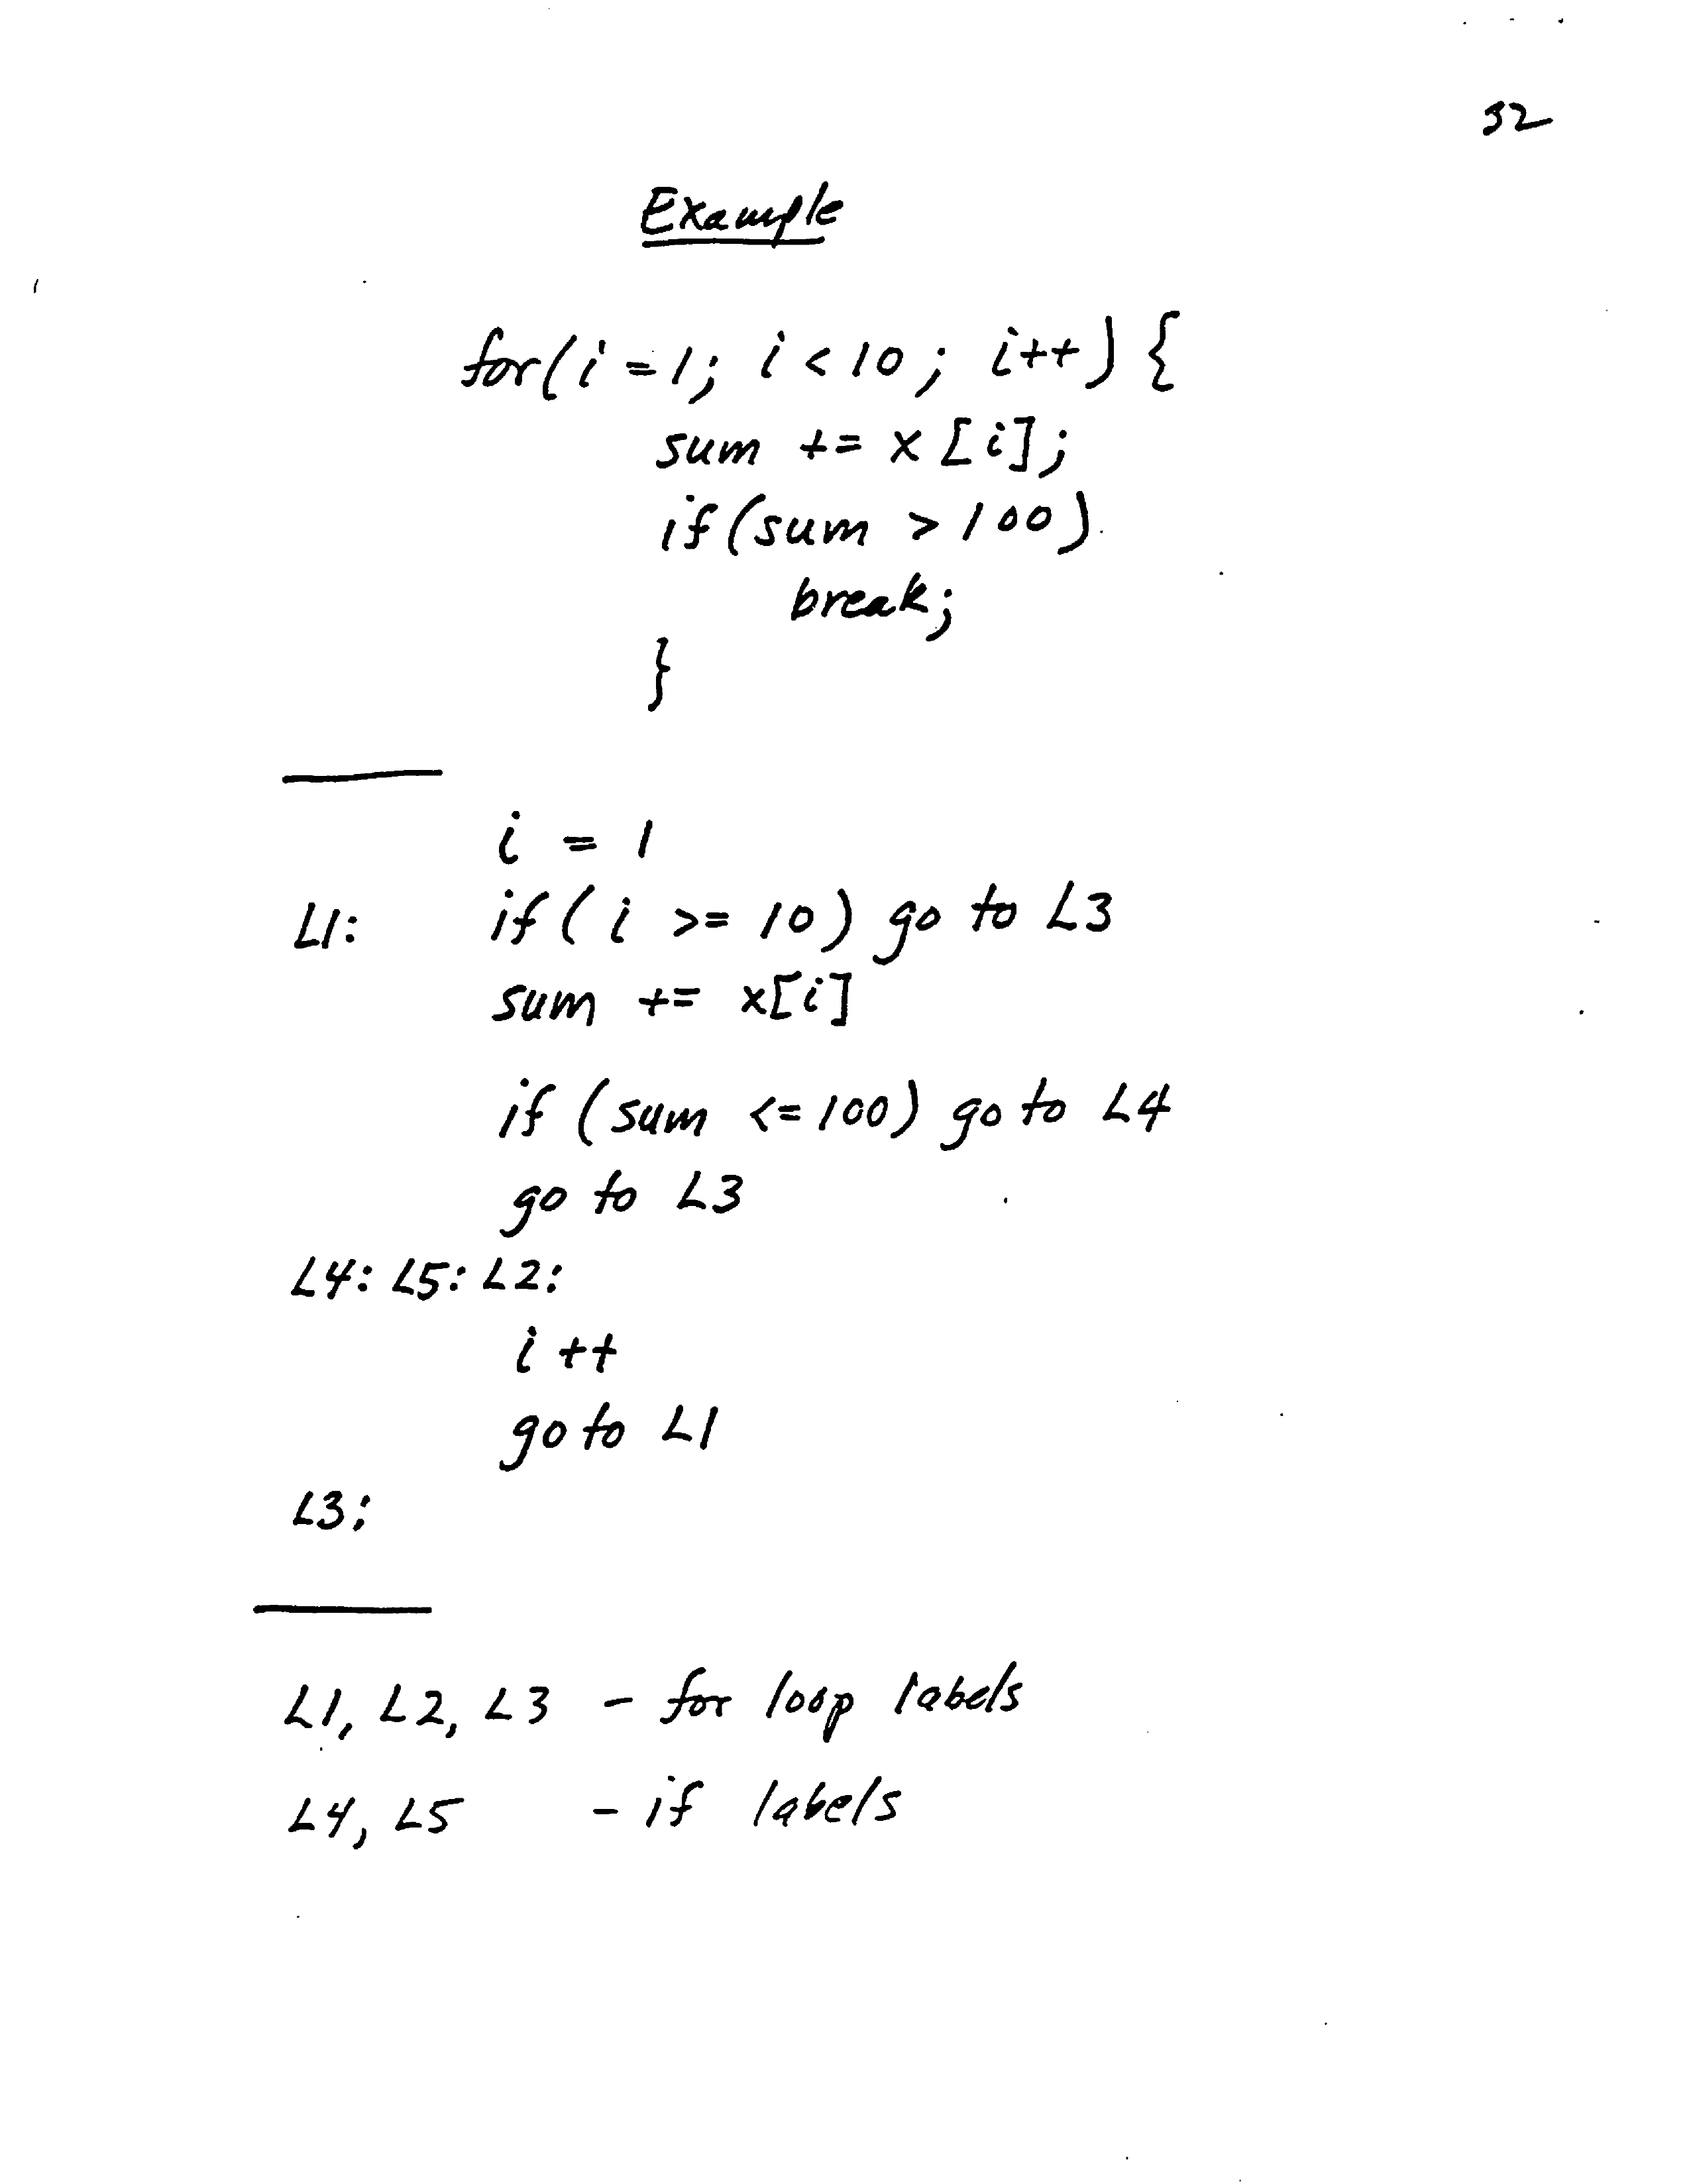 32
Example
for(i = 1; i < 10; i++) {
sum += x[i];
if(sum > 100)
break;
}
i = 1
L1: if(i >= 10) go to L3
sum += x[i]
if (sum <= 100) go to L4
go to L3
L4: L5: L2:
i++
go to L1
L3:
L1, L2, L3 - for loop labels
L4, L5 - if labels